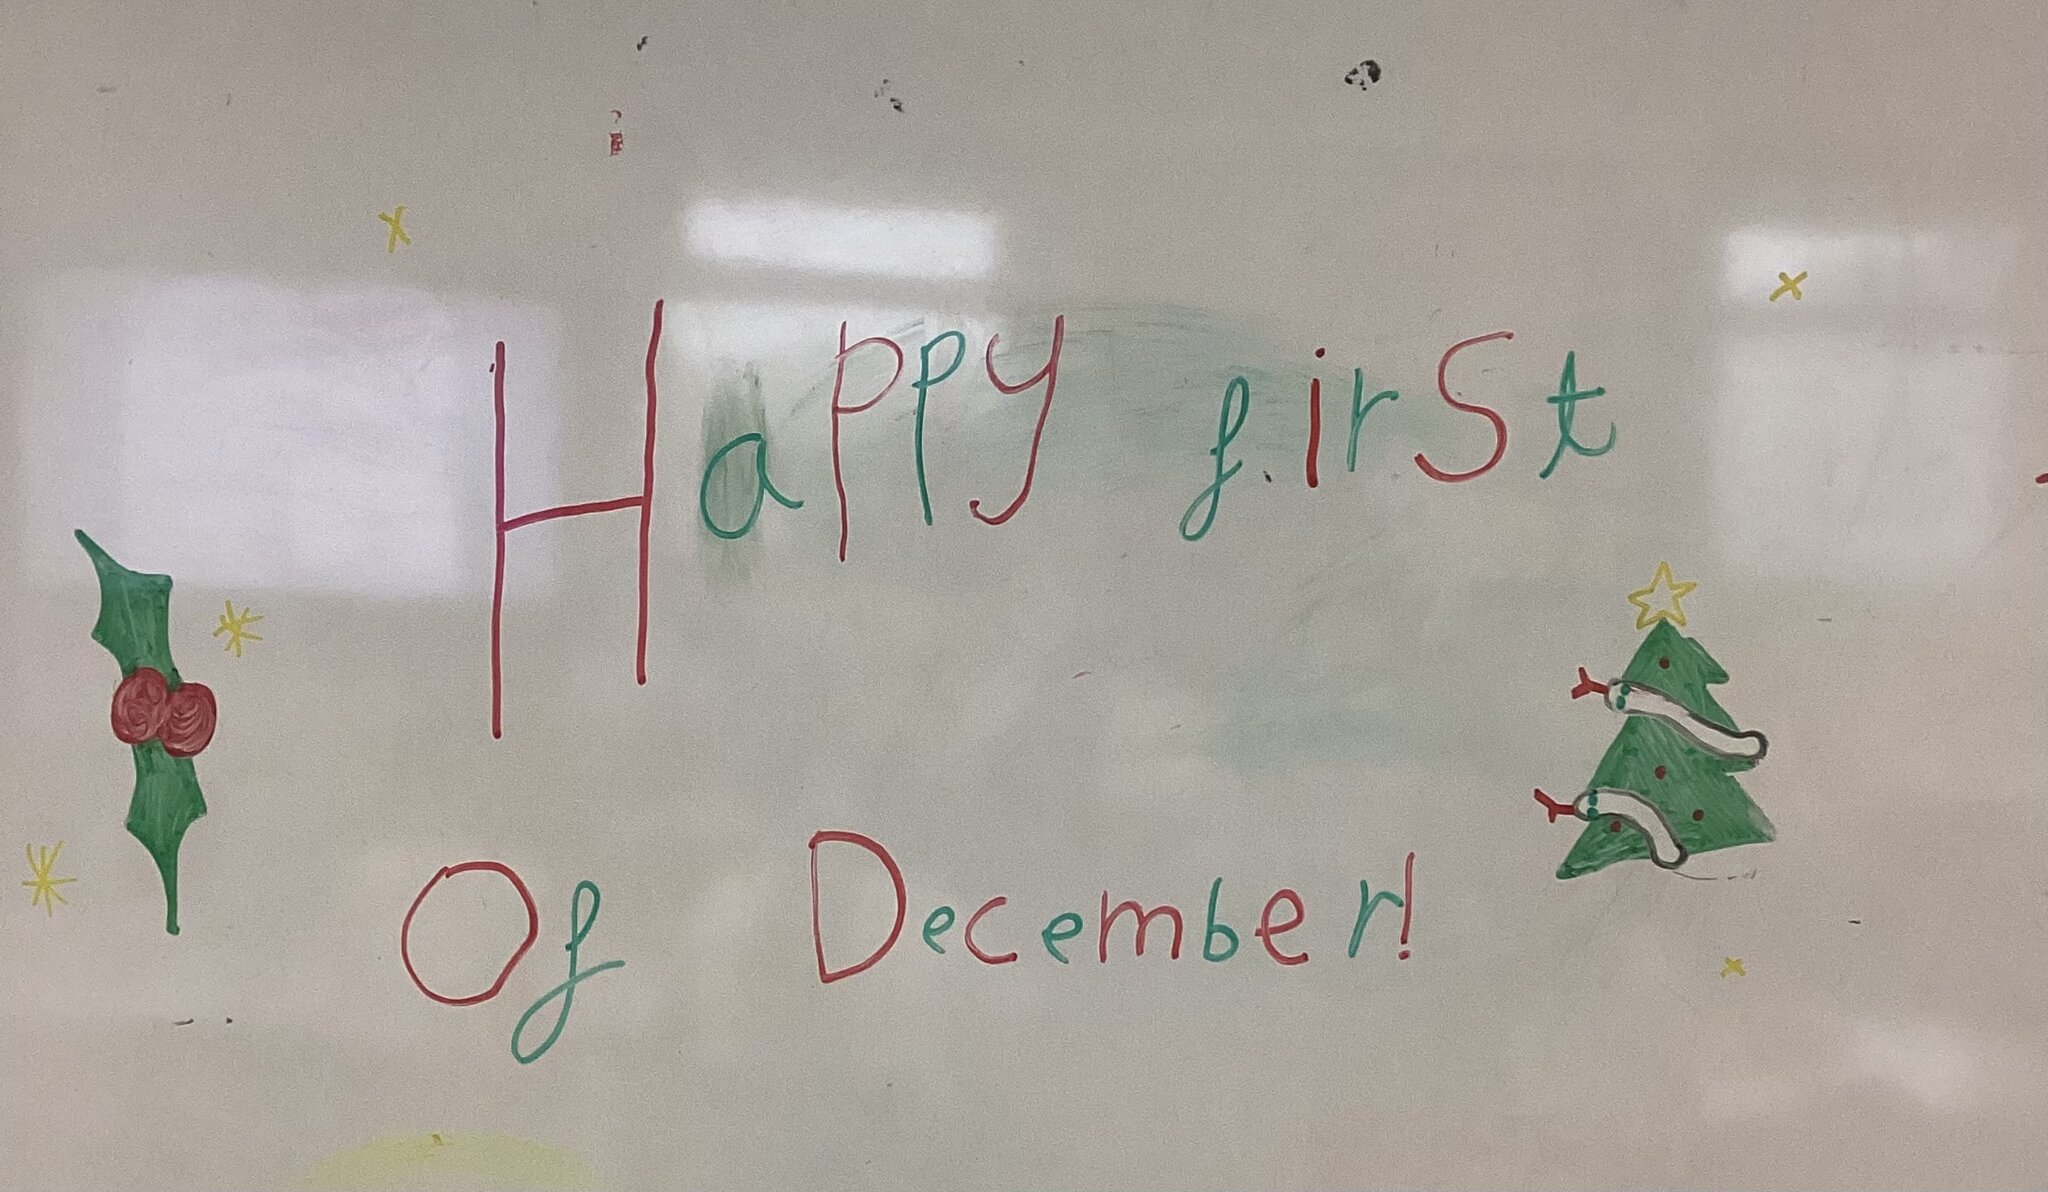 Happy first
Of December!